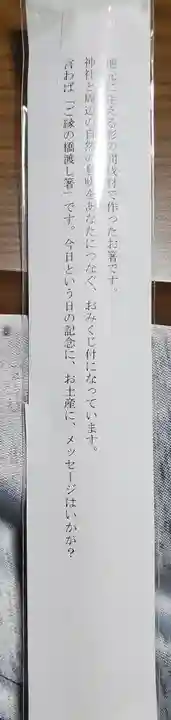 地元に生える杉の間伐材で作ったお箸です。
神社と周辺の自然の息吹をあなたにつなぐ、おみくじ付になっています。
言わば「ご縁の橋渡し箸」です。今日という日の記念に、お土産に、メッセージはいかが？